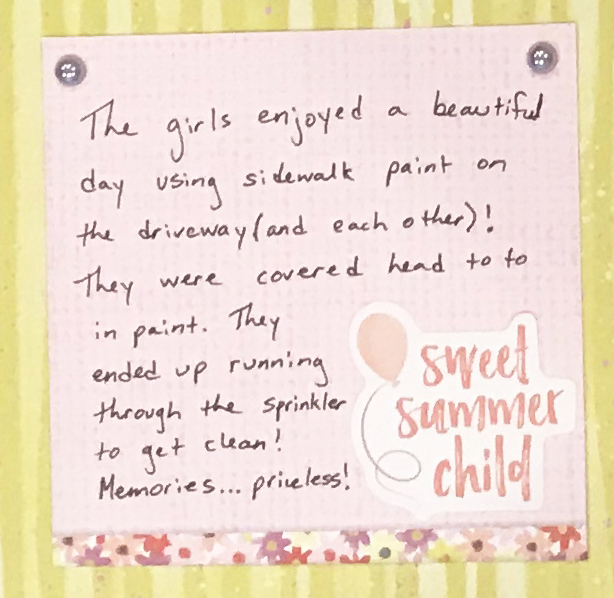 The girls enjoyed a beautiful
day using sidewalk paint on
the driveway (and each other)!
They were covered head to to
in paint. They
ended up running
through the sprinkler
to get clean!
Memories... priceless!
sweet
summer
child